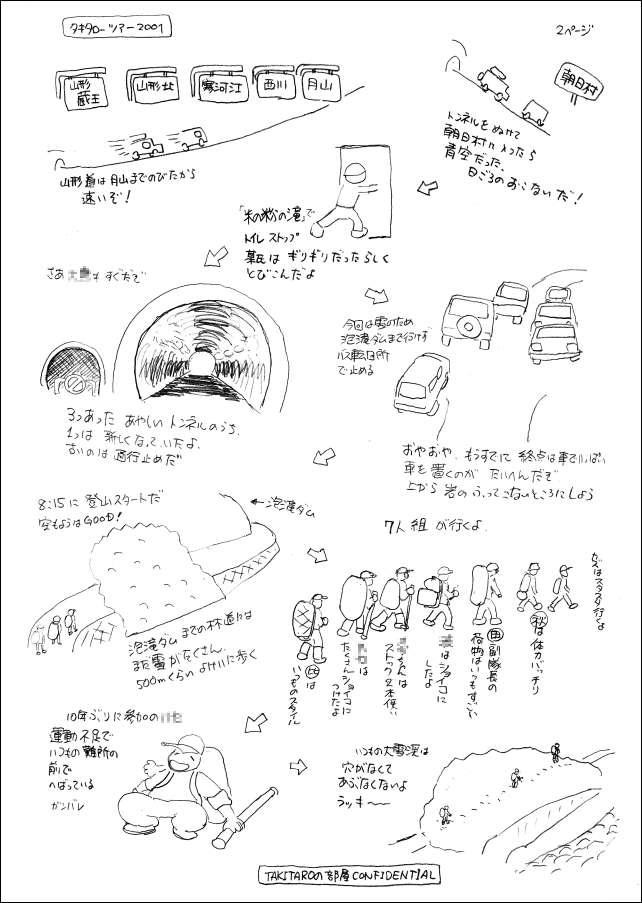 タキタローツアー2001
2ページ
山形
蔵王
山形北
寒河江
西川
月山
朝日村
山形道は月山までのびたから
速いぞ!
トンネルをぬけて
朝日村に入ったら
青空だった。
日ごろのおこないだ!
「米の粉の滝」で
トイレストップ
はギリギリだったらしく
とびこんだよ
さあ もすぐだで
今回は雪のため
泡滝ダムまで行けず
バス転回所
で止める
3つあったあやしいトンネルのうち、
1つは新しくなっていたよ。
古いのは通行止めだ
おやおや、もうすでに終点は車でいっぱい
車を置くのがたいへんだで
上から岩のふってこないところにしよう
8:15に登山スタートだ
空もようはGOOD!
←泡滝ダム
泡滝ダムまでの林道には
まだ雪がたくさん
500mくらいよけいに歩く
7人組が行くよ
はスタスタ行くよ
秋は体力バッチリ
副隊長の
荷物はいつもすごい
はショイコに
したよ
ちゃんは
ストック2本使い
は
たくさんショイコに
つけたよ
は
いつものスタイル
10年ぶりに参加の
運動不足で
いつもの難所の
前で
へばっている
ガンバレ
いつもの大雪渓は
穴がなくて
あぶなくないよ
ラッキ〜〜
TAKITAROの部屋 CONFIDENTIAL